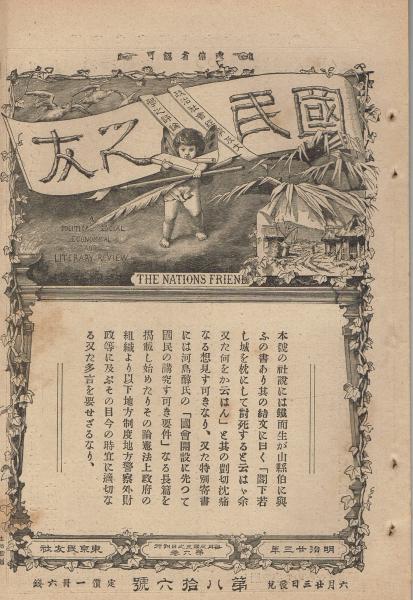 可認省信遞
國民之友
A
POLITICAL SOCIAL
ECONOMICAL
AND
LITERARY REVIEW
THE NATION'S FRIEND
本號の社說には鐵面生が山縣伯に與
ふの書あり其の結文に曰く「閣下若
し城を枕にして討死すると云はゞ余
又た何をか云はん」と其の剴切沈痛
なる想見す可きなり、又た特別寄書
には河島醇氏の「國會開設に先つて
國民の講究す可き要件」なる長篇を
揭載し始めたりその論憲法上政府の
組織より以下地方制度地方警察外財
政等に及ぶその目今の時宜に適切な
る又た多言を要せざるなり、
明治廿三年
第六卷
東京民友社
六月廿三日發兌
第八拾六號
定價一冊六錢